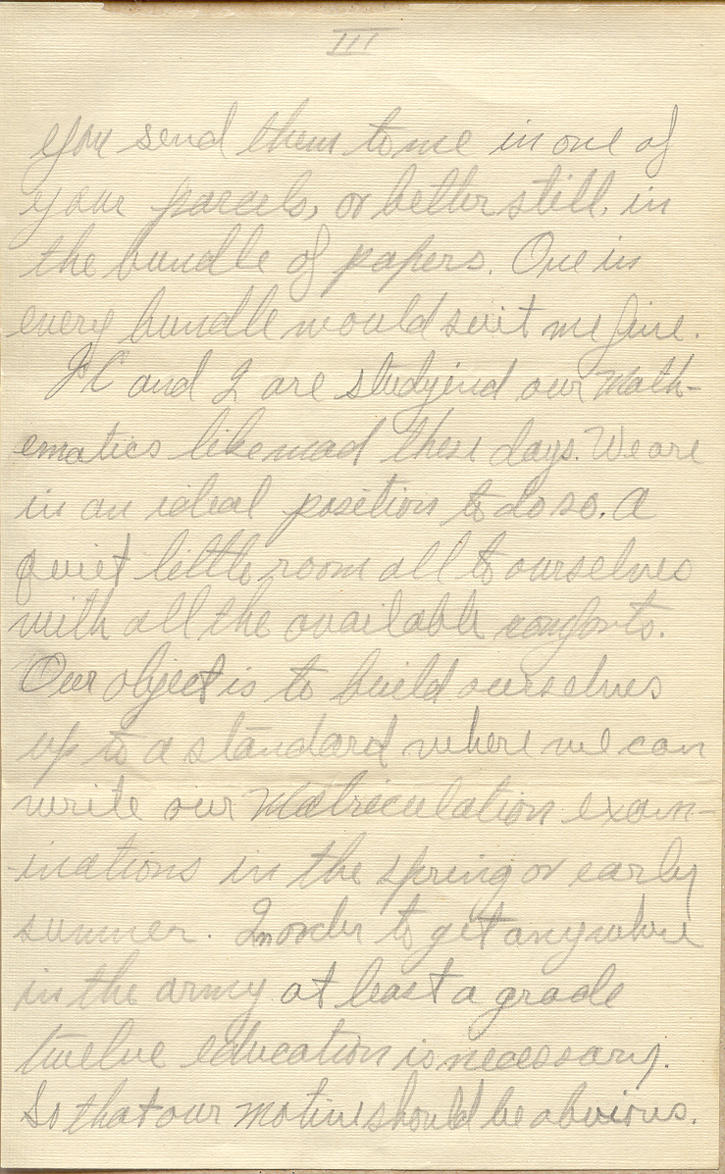 III
you send them to me in one of
your parcels, or better still, in
the bundle of papers. One in
every bundle would suit me fine.
JC and I are studyind our Math-
ematics like mad these days. We are
in an ideal position to do so. A
quiet little room all to ourselves
with all the available comforts.
Our object is to build ourselves
up to a standard where we can
write our Matriculation exam-
-inations in the spring or early
summer. In order to get anywhere
in the army at least a grade
twelve education is necessary.
So that our motive should be obvious.